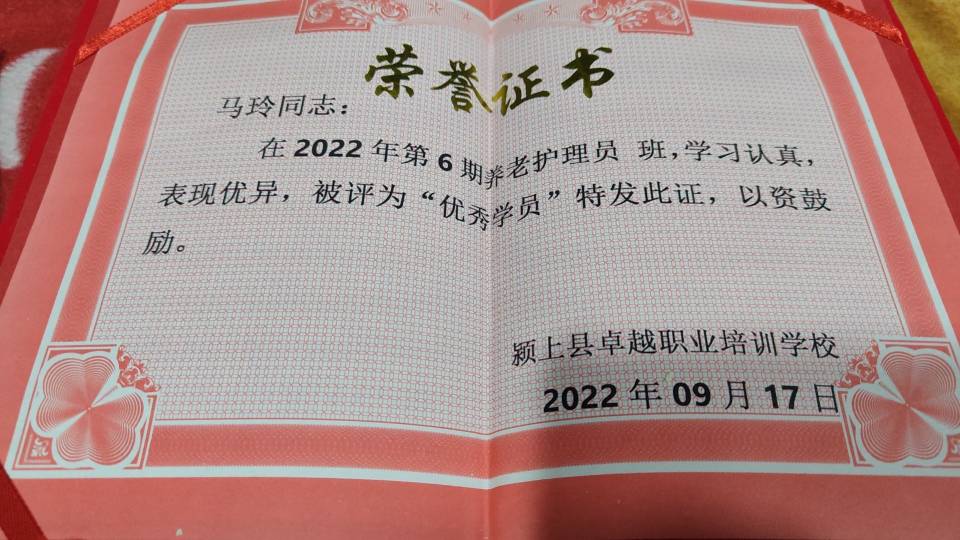 荣誉证书
马玲同志：
在 2022 年第 6 期养老护理员 班，学习认真，
表现优异，被评为“优秀学员”特发此证，以资鼓
励。
颍上县卓越职业培训学校
2022 年 09 月 17 日